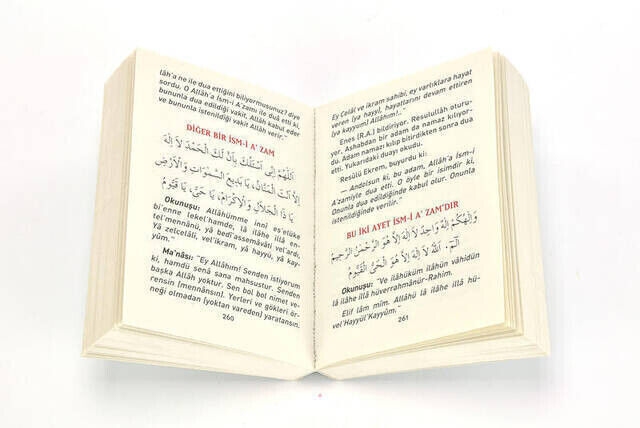 lâh'a ne ile dua ettiğini biliyormusunuz? diye
sordu. O Allâh'a İsm-i A'zamı ile dua etti ki,
bununla dua edildiği vakit, Allâh kabul eder
ve bununla istenildiği vakit Allâh verir."
DİĞER BİR İSM-İ A' ZAM
اَللّٰهُمَّ اِنّٖى اَسْئَلُكَ بِاَنَّ لَكَ الْحَمْدُ لَا اِلٰهَ
اِلَّا اَنْتَ الْمَنَّانُ، يَا بَدٖيعَ السَّمٰوَاتِ وَالْاَرْضِ
يَا ذَا الْجَلَالِ وَالْاِكْرَامِ، يَا حَىُّ، يَا قَيُّومُ
Okunuşu: "Allâhümme innî es'elüke
bi'enne lekel'hamde, lâ ilâhe illâ en-
tel'mennânü, yâ bedî'assemâvâti vel'ardı,
Yâ zelcelâli, vel'ikram, yâ hayyü, yâ kay-
yûmü."
Ma'nâsı: "Ey Allâhım! Senden istiyorum
ki, hamdü senâ sana mahsustur. Senden
başka Allâh yoktur. Sen bol bol nimet ve-
rensin (mennânsın). Yerleri ve gökleri ör-
neği olmadan (yoktan vareden) yaratansın.
260
Ey Celâl ve ikram sahibi, ey varlıklara hayat
veren (ya hayyi), hayatlarını devam ettiren
(ya kayyum) Allâhım!.."
Enes (R.A.) bildiriyor. Resulullah oturu-
yor. Ashabdan bir adam da namaz kılıyor-
du. Adam namazı kılıp bitirdikten sonra dua
etti. Yukarıdaki duayı okudu.
Resûlü Ekrem, buyurdu ki:
— Andolsun ki, bu adam, Allâh'a İsm-i
A'zamiyle dua etti. O öyle bir isimdir ki,
Onunla dua edildiğinde kabul olur. Onunla
istenildiğinde verilir."
BU İKİ AYET İSM-İ A' ZAM'DIR
وَاِلٰهُكُمْ اِلٰهٌ وَاحِدٌ لَا اِلٰهَ اِلَّا هُوَ الرَّحْمٰنُ الرَّحٖيمُ
الٓمٓ. اَللّٰهُ لَا اِلٰهَ اِلَّا هُوَ الْحَىُّ الْقَيُّومُ
Okunuşu: "Ve ilâhüküm ilâhün vâhidün
lâ ilâhe illâ hüverrahmânür-Rahîm.
Elif lâm mîm. Allâhü lâ ilâhe illâ hü-
vel'Hayyül'Kayyûm."
261